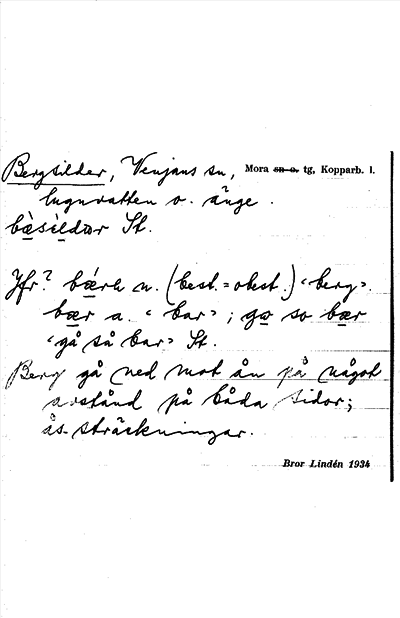 Bergsilder, Venjans sn, Mora sn o. tg, Kopparb. l.
lugnvatten o. änge.
bæ̀sìldɷr St.
Jfr? bǽrh n. (best. = obest.) "berg".
bær a. "bar"; gɷ so bær
"gå så bar" St.
Berg gå ned mot ån på något
avstånd på båda sidor;
ås-sträckningar.
Bror Lindén 1934